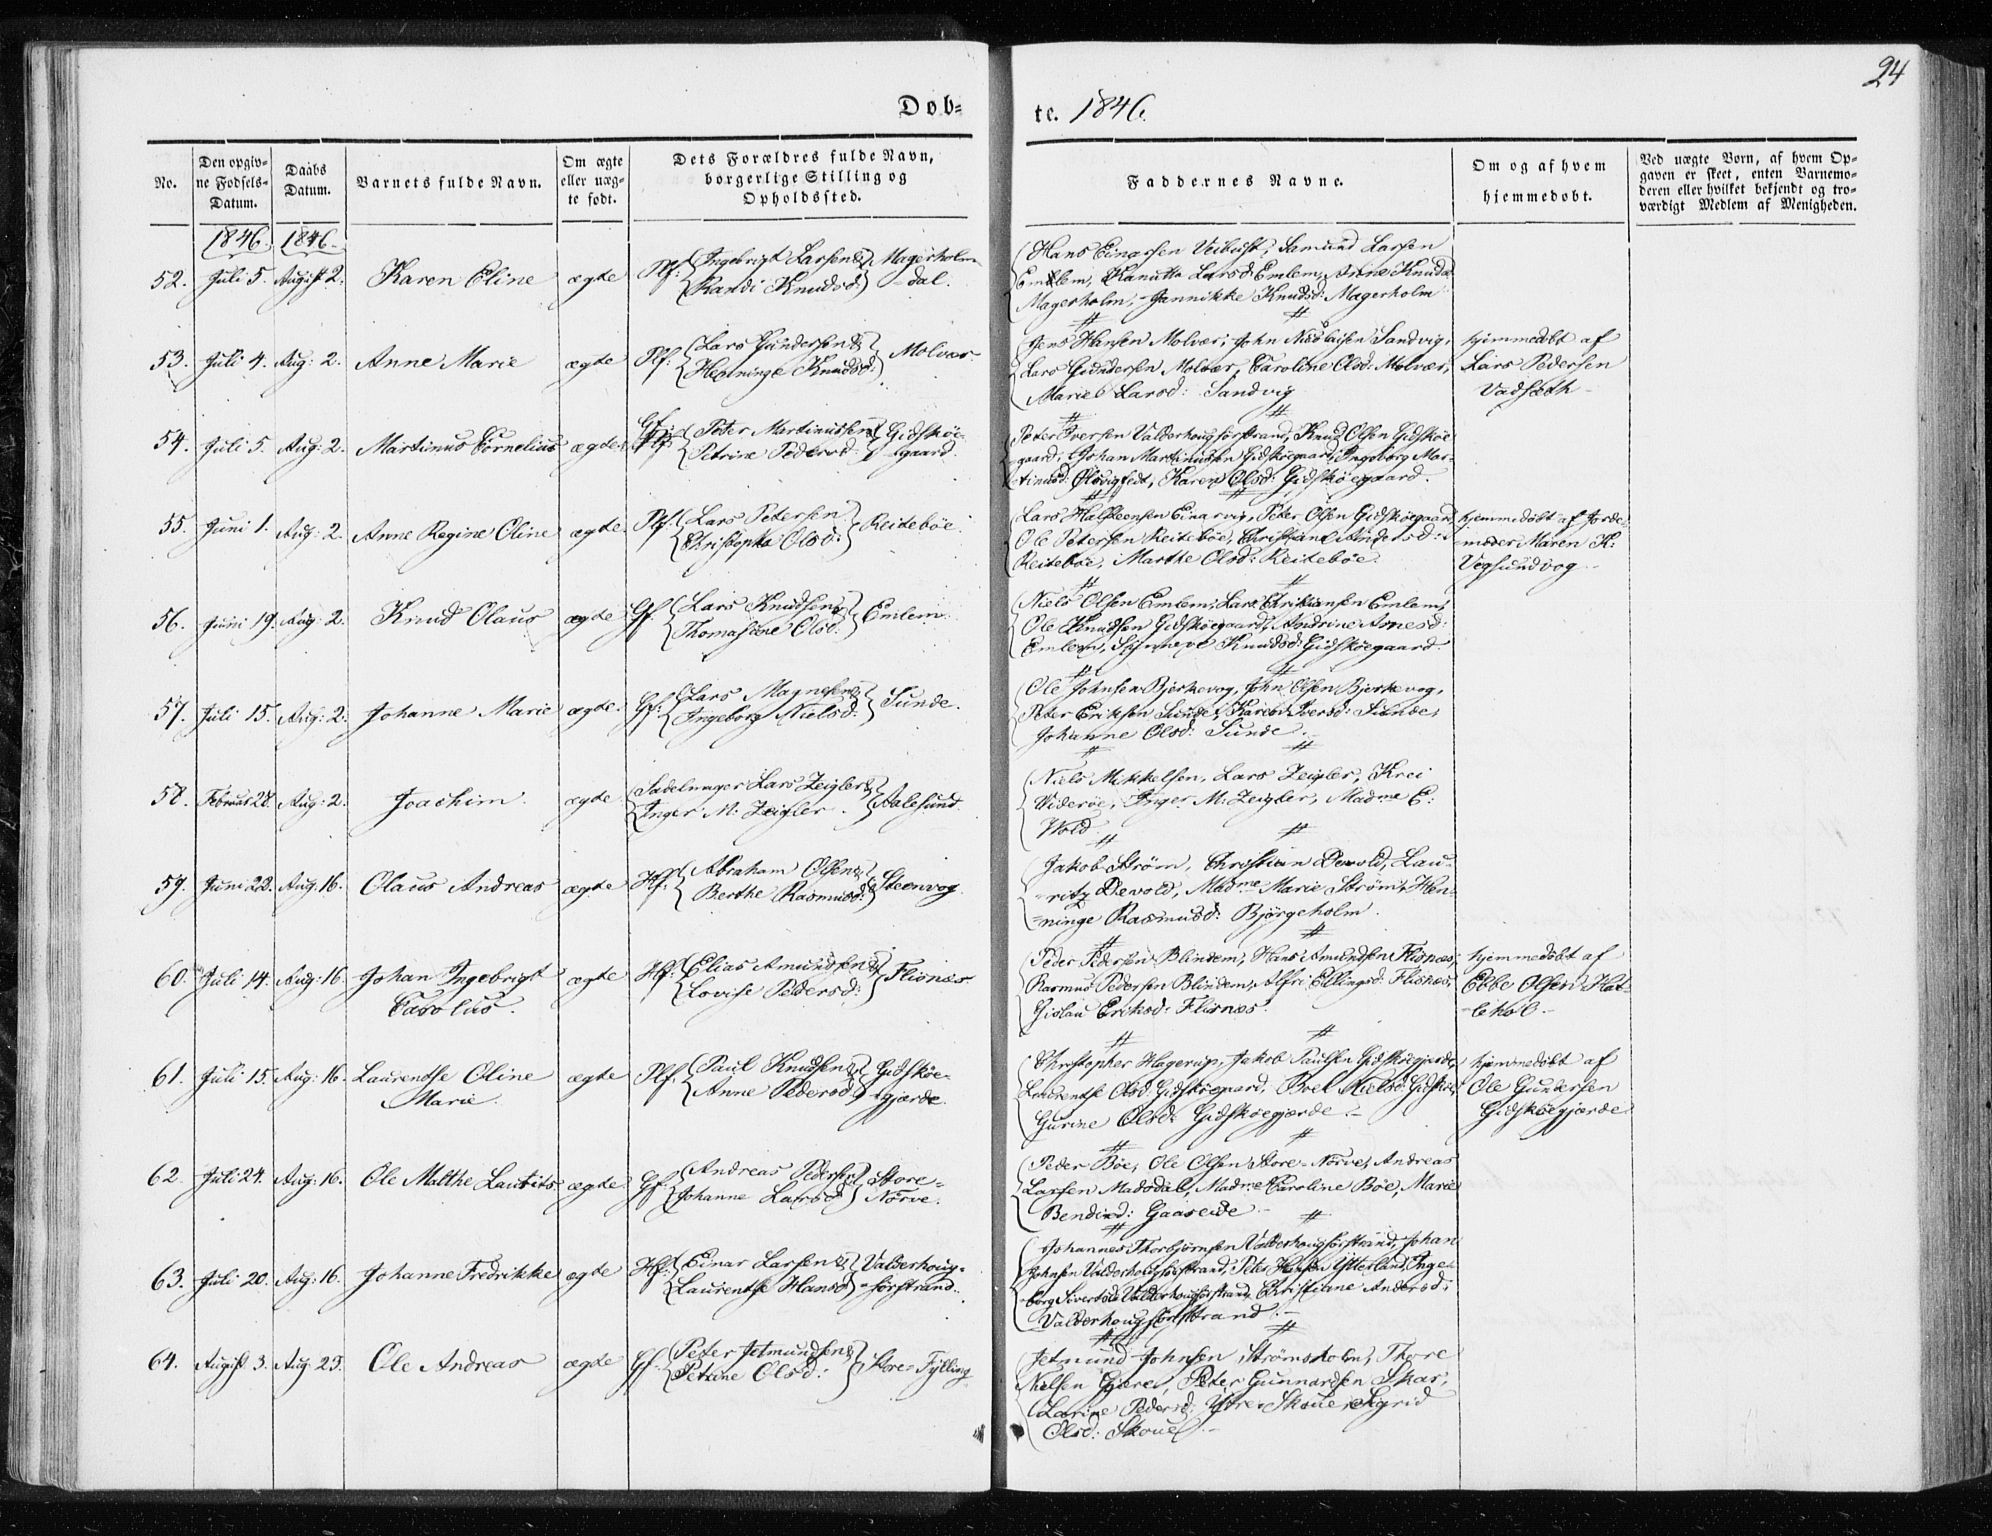 24
Døb-
te. 1846.
No.
Den opgiv-
ne Fødsels-
Datum.
Daabs
Datum.
Barnets fulde Navn.
Om ægte
eller uæg-
te født.
Dets Forældres fulde Navn,
borgerlige Stilling og
Opholdssted.
Faddernes Navne.
Om og af hvem
hjemmedøbt.
Ved uægte Børn, af hvem Op-
gaven er skeet, enten Barnemo-
deren eller hvilket bekjendt og tro-
værdigt Medlem af Menigheden.
1846. 1846.
52. Juli 5. August 2. Karen Eline ægte Plf: Ingebrigt Larsen & Randi Knudsd: Magerholm-dal.
Hans Einarsen Veibust, Samund Larsen
Emblem, Hanutte Larsd: Emlem, Anne Knudsd:
Magerholm, Jannikke Knudsd: Magerholm
53. Juli 4. Aug: 2. Anne Marie ægte Plf: Lars Gundersen & Henninge Knudsd: Molvær
Jens Hansen Molvær, John Nicolaisen Sandvig,
Lars Gundersen Molvær, Caroline Olsd: Molvær,
Marie Larsd: Sandvig
hjemmedøbt af
Lars Pedersen
Vadsæth
54. Juli 5. Aug: 2. Martinus Cornelius ægte Gf: Peter Martinussen & Petrine Pedersd: Gidskøe-gaard.
Peter Iversen Valderhougförstrand, Knud Olsen Gidskøe
gaard, Johan Martinussen Gidskøegaard, Ingeborg Mar-
tinusd: Karen Olsd: Gidskøegaard.
55. Juni 1. Aug: 2. Anne Regine Oline ægte Plf: Lars Petersen Christopha Olsd: Reitebøe
Lars Halsteensen Einarvig, Peter Olsen Gidskøegaard,
Ole Petersen Reitebøe, Christiane Andersd:
Reitebøe, Marthe Olsd: Reitebøe.
hjemmedøbt af Jorde-
moder Maren K:
Vegsundvog
56. Juni 19. Aug: 2. Knud Olaus ægte Gf: Lars Knudsen & Thomasine Olsd: Emlem
Niels Olsen Emlem, Lars Christiansen Emlem,
Ole Knudsen Gidskøegaard, Andrine Arnesd:
Emlem, Synneve Knudsd: Gidskøegaard.
57. Juli 15. Aug: 2. Johanne Marie ægte Gf: Lars Magnesen & Ingeborg Nielsd: Sunde.
Ole Johnsen Bjerkevog, John Olsen Bjerkevog,
Peter Eriksen Sunde, Karen Iversd: Sunde,
Johanne Olsd: Sunde.
58. Februar 28. Aug: 2. Joachim ægte Sadelmager Lars Zeigler & Inger M: Zeigler. Aalesund.
Niels Mikkelsen, Lars Zeigler, Krei
Viderøe, Inger M: Zeigler, Madme E:
Wold
59. Juni 22. Aug. 16. Olaus Andreas ægte Hf: Abraham Olsen & Berthe Rasmusd: Steenvog
Jakob Strøm, Christian Devold, Lau-
ritz Devold, Madme Marie Strøm, Hen-
ninge Rasmusd: Bjørgeholm.
60. Juli 14. Aug: 16. Johan Ingebrigt Carolus. ægte Hf: Elias Amundsen & Lovise Pedersd: Flisnæs
Peder Pedersen Blindem, Hans Amundsen Flisnæs,
Rasmus Pedersen Blindem, Alfri Ellingsd: Flisnæs,
Gislau Eriksd: Flisnæs.
hjemmedøbt af
Ebbe Olsen Hat-
lehol
61. Juli 15. Aug: 16. Laurentse Oline Marie. ægte Plf: Paul Knudsen & Anne Pedersd: Gidskøe-gjærde.
Christopher Hagerup, Jakob Paulsen Gidskøegjærde,
Laurentse Olsd: Gidskøegaard, Boel Nielsd: Gidskøe,
Gurine Olsd: Gidskøegjærde.
hjemmedøbt af
Ole Gundersen
Gidskøegjærde
62. Juli 24. Aug: 16. Ole Malthe Lauritz ægte Gf: Andreas Pedersen & Johanne Larsd: Store-Nørve.
Peder Bøe, Ole Olsen Store-Nørve, Andreas
Larsen Madsdal, Madme Caroline Bøe, Marie
Bendixd: Gaaseide
63. Juli 20. Aug: 16. Johanne Fredrikke ægte Hf: Einar Larsen & Laurentse Hansd: Valderhoug-förstrand.
Johannes Thorbjørnsen Valderhougförstrand, Johan
Johnsen Valderhougförstrand, Peter Hansen Ytterland, Inge-
borg Sivertsd: Valderhougförstrand, Christiane Andersd:
Valderhougförstrand.
64. August 3. Aug 23. Ole Andreas ægte Gf: Peter Jetmundsen & Petrine Olsd: Store-Fylling
Jetmund Johnsen Strømsholm, Thore
Nielsen Gjære, Peter Gunnardsen Skar,
Larine Pedersd: Ytre-Skoue, Sigrid
Olsd: Skoue.